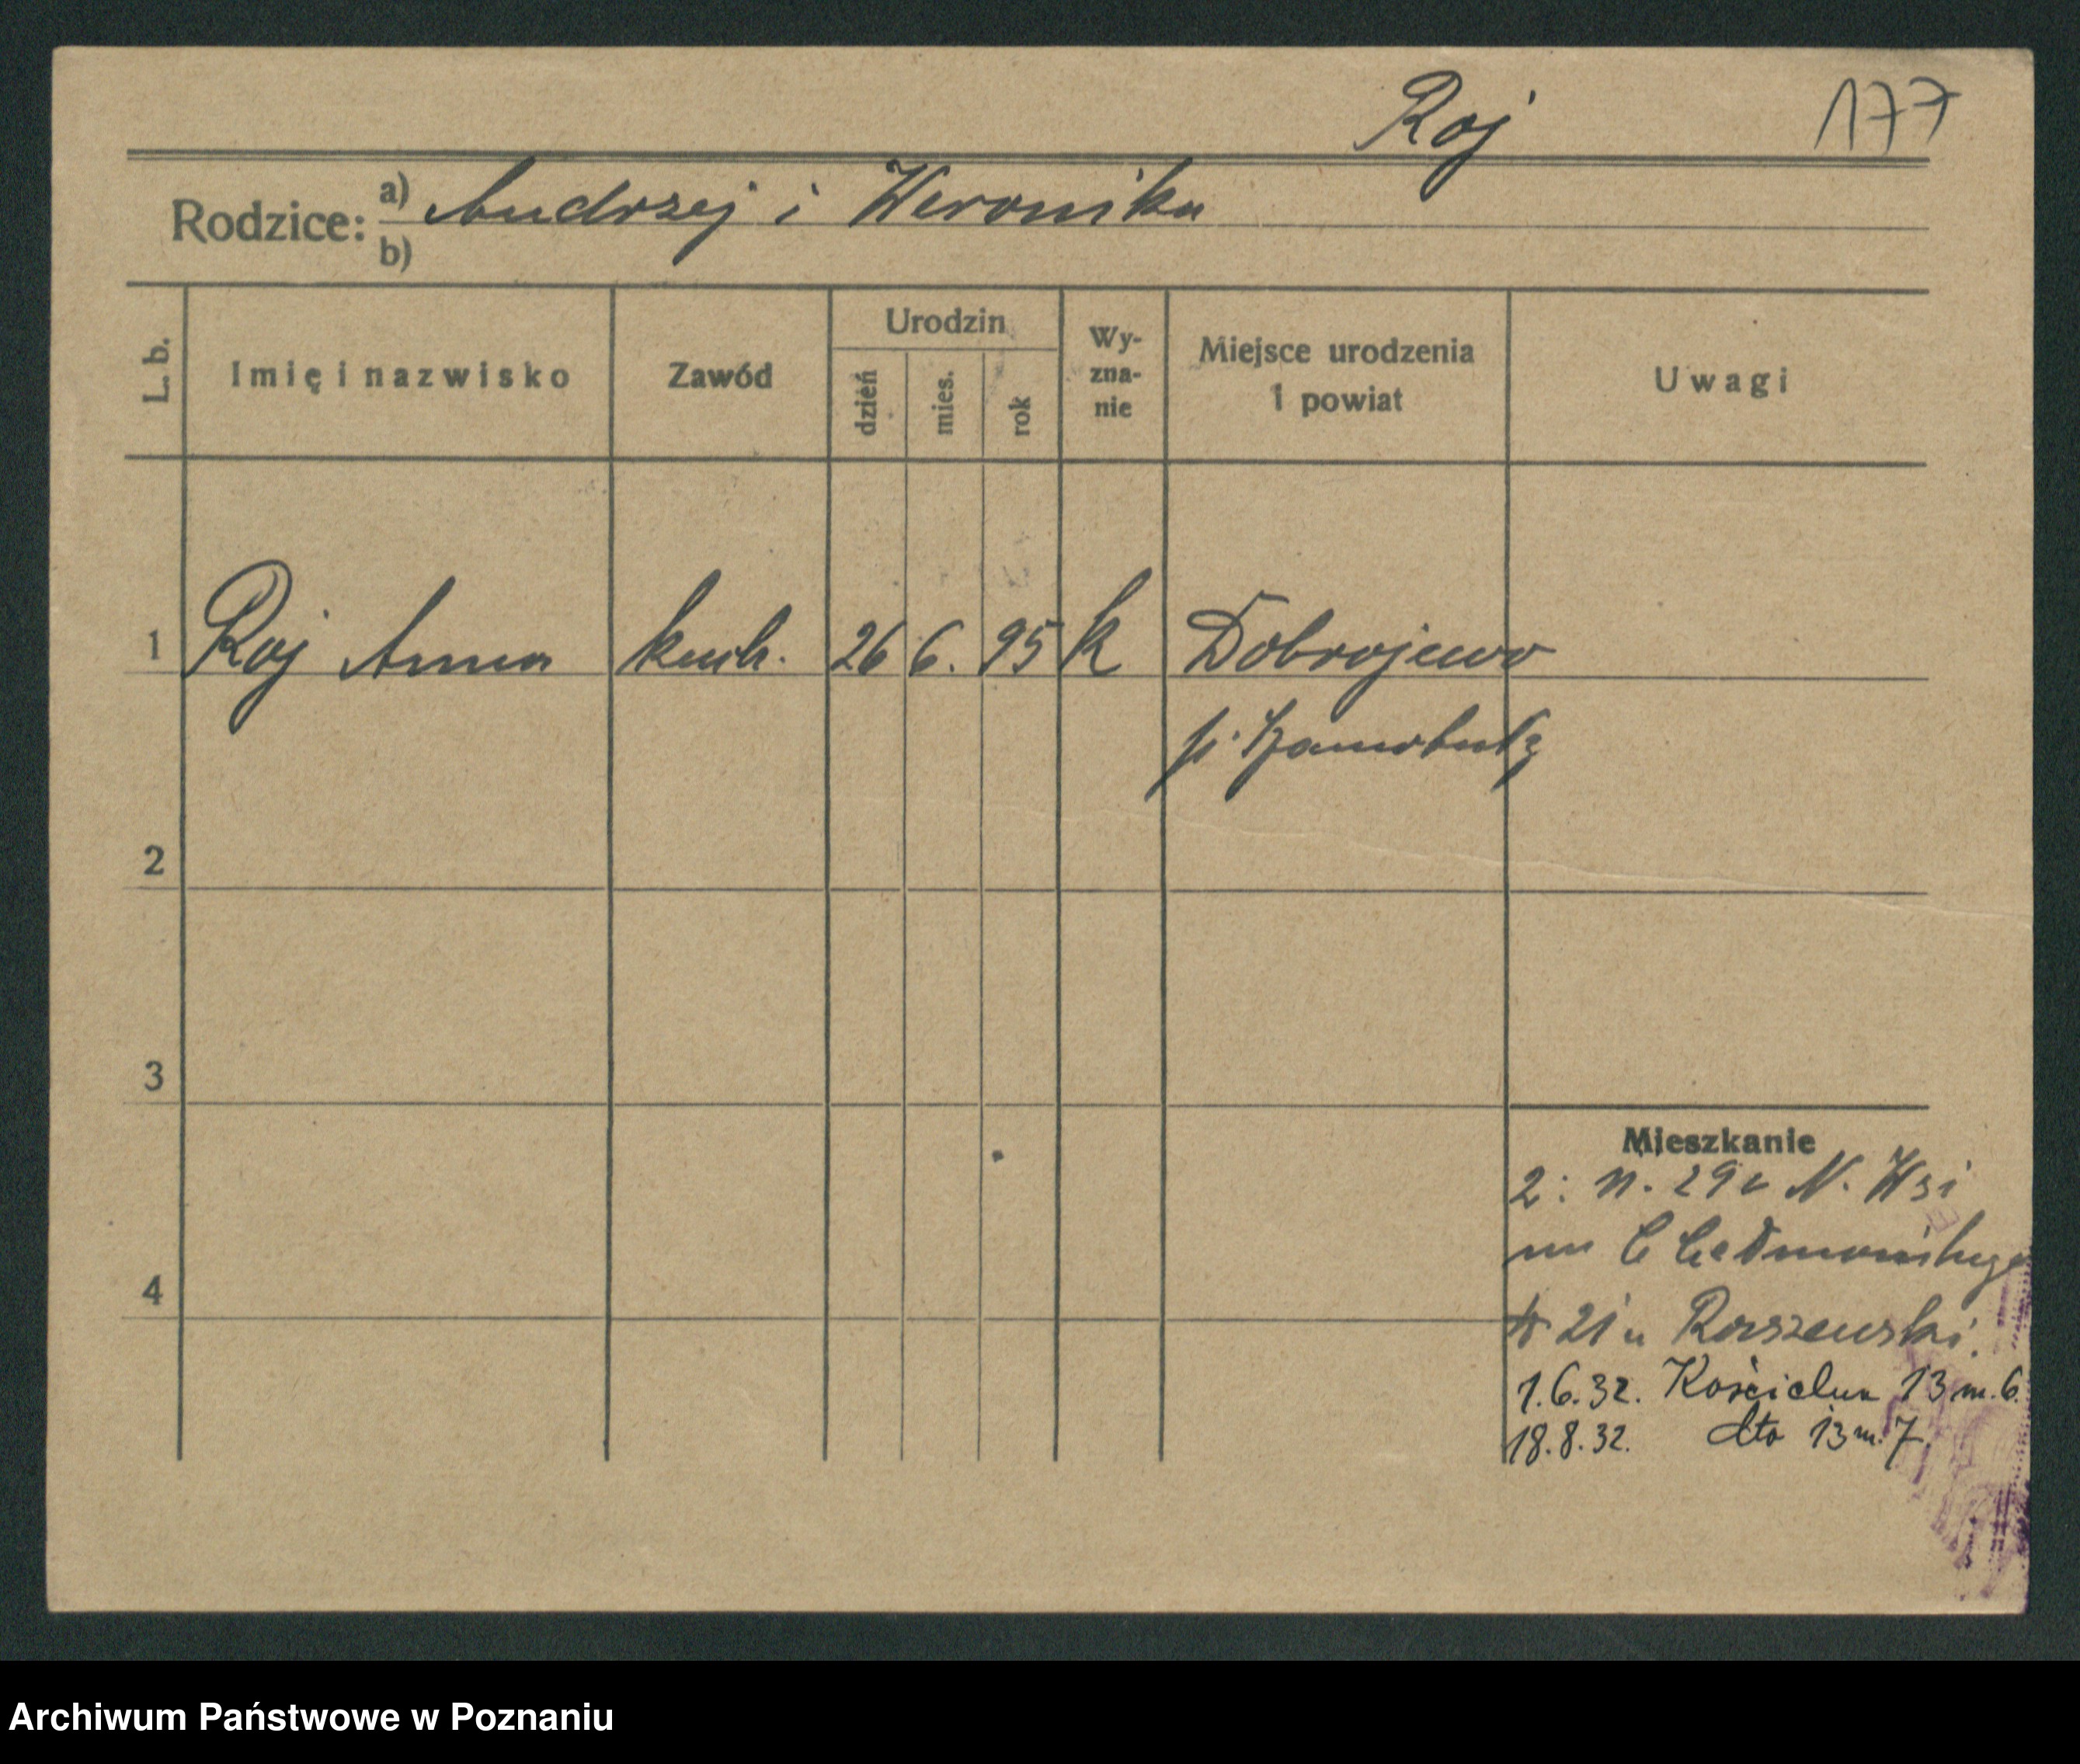 Roj 177
Rodzice: a) Andrzej i Weronika
b)
L. b. Imię i nazwisko Zawód Urodzin dzień mies. rok Wy-zna-nie Miejsce urodzenia i powiat Uwagi
1 Roj Anna kuch. 26 6. 95 k Dobrojewo
p. Szamotuły
2
3
Mieszkanie
2: n. 29 N. Wsi
4
21 u Raszewski.
1.6.32. Kościelna 13 m. 6.
18.8.32. dto 13 m. 7.
Archiwum Państwowe w Poznaniu